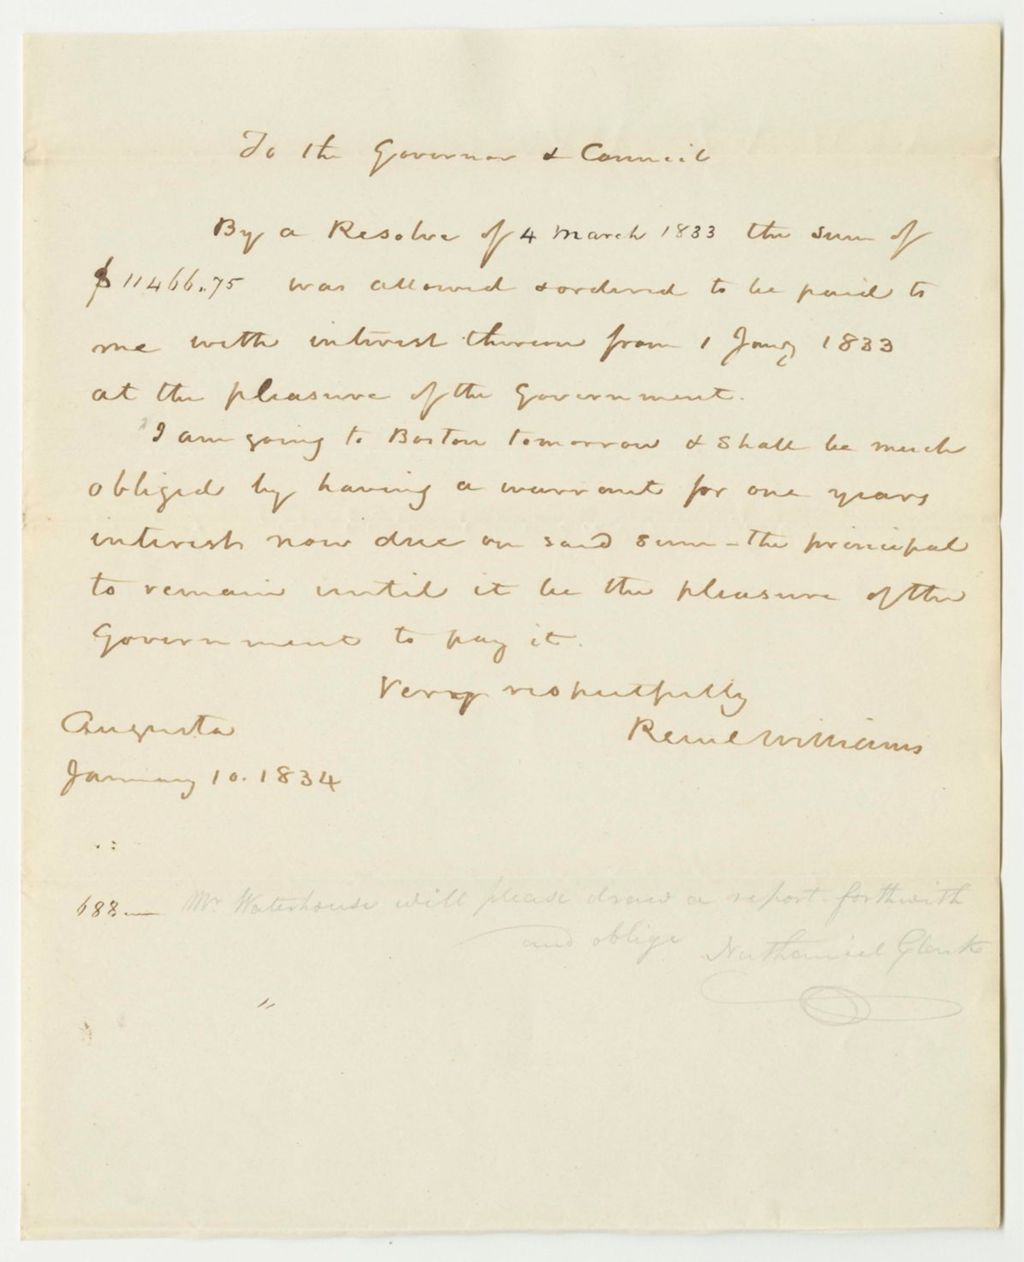 To the Governor & Council
By a Resolve of 4 March 1833 the sum of
$11466.75 was allowed & ordered to be paid to
me with interest thereon from 1 Jany 1833
at the pleasure of the Government.
I am going to Boston tomorrow & shall be much
obliged by having a warrant for one years
interest now due on said sum - the principal
to remain until it be the pleasure of the
Government to pay it.
Very respectfully
Reuel Williams
Augusta
January 10. 1834
688
Mr Waterhouse will please draw a report forthwith
and oblige Nathaniel Clark